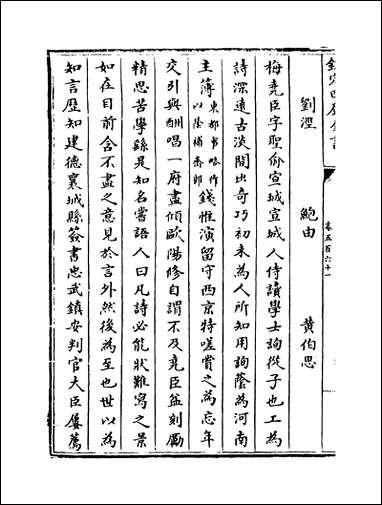 欽定四庫全書
卷五百六十一
劉涇　鮑由　黄伯思
梅堯臣字聖俞宣城宣城人侍讀學士詢從子也工為
詩深遠古淡閒出奇巧初未為人所知用詢蔭為河南
主簿東都事略作以蔭補齋郎錢惟演留守西京特嗟賞之為忘年
交引與酬唱一府盡傾歐陽修自謂不及堯臣益刻勵
精思苦學繇是知名嘗語人曰凡詩必能狀難寫之景
如在目前含不盡之意見於言外然後為至也世以為
知言歴知建德襄城縣簽書忠武鎮安判官大臣屢薦